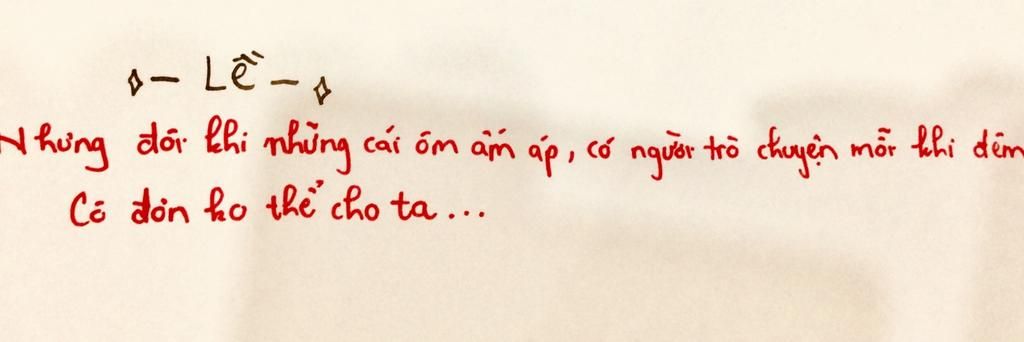 - Lề -
Nhưng đôi khi những cái ôm ấm áp, có người trò chuyện mỗi khi đêm
Cô đơn ko thể cho ta...